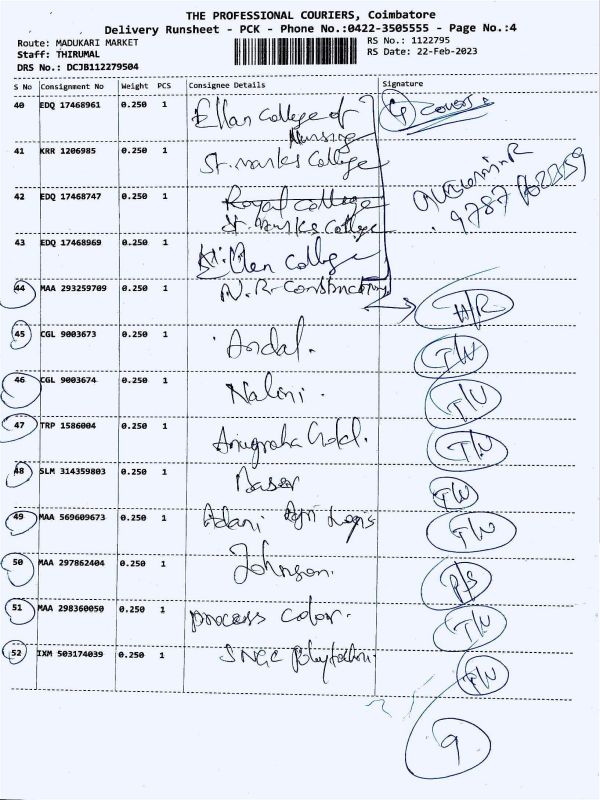 THE PROFESSIONAL COURIERS, Coimbatore
Delivery Runsheet - PCK - Phone No.:0422-3505555 - Page No.:4
Route: MADUKARI MARKET RS No.: 1122795
Staff: THIRUMAL RS Date: 22-Feb-2023
DRS No.: DCJB112279504
S No Consignment No Weight PCS Consignee Details Signature
40 EDQ 17468961 0.250 1 Ellan College of Nursing 4 covers
41 KRR 1206985 0.250 1 St. marks College
42 EDQ 17468747 0.250 1 Royal College
St. Marks College
9787
43 EDQ 17468969 0.250 1 Ellen College
44 MAA 293259709 0.250 1 N.R. Construction H/R
45 CGL 9003673 0.250 1 Andal. T/W
46 CGL 9003674 0.250 1 Nalini. T/W
47 TRP 1586004 0.250 1 T/W
48 SLM 314359803 0.250 1 T/W
49 MAA 569609673 0.250 1 Adani Agri Logis T/W
50 MAA 297862404 0.250 1 Johnson. P/S
51 MAA 298360050 0.250 1 process color. T/W
52 IXM 503174039 0.250 1 SNGC T/W
9